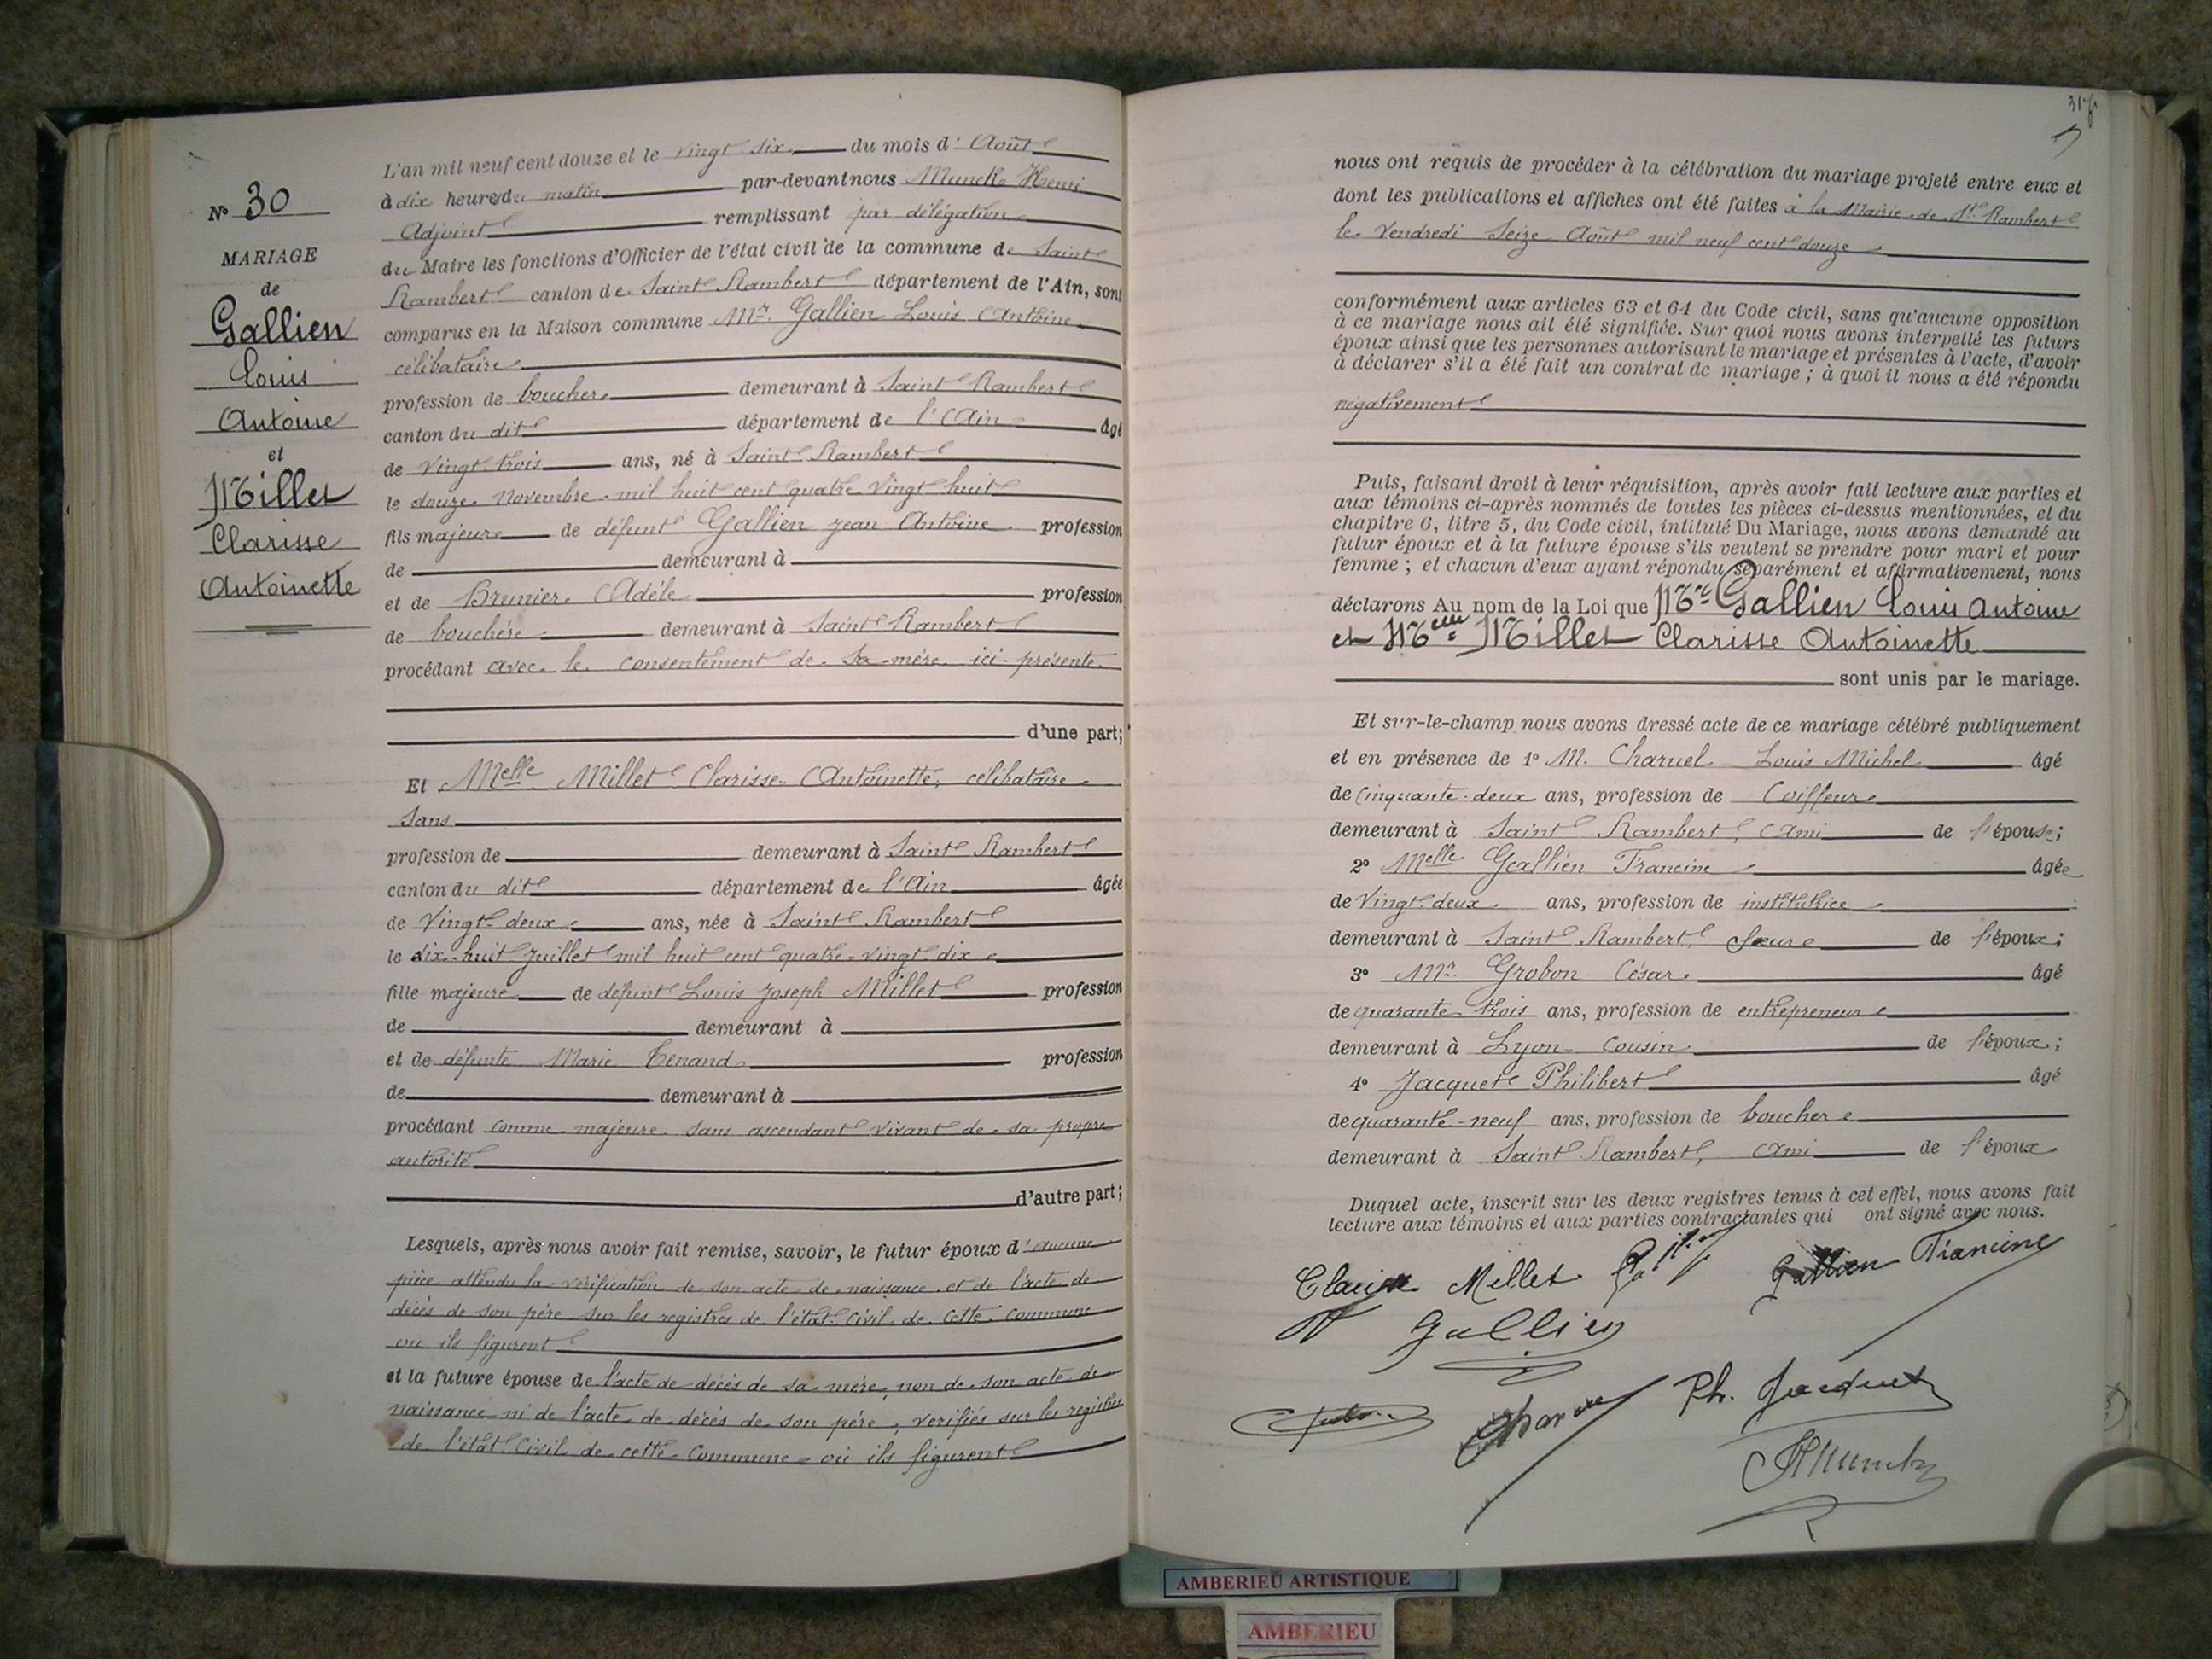 N° 30
MARIAGE
de
Gallien
Louis
Antoine
et
Millet
Clarisse
Antoinette
L'an mil neuf cent douze et le vingt six du mois d'Août
à dix heures du matin par-devant nous Munck Henri
Adjoint remplissant par délégation
du Maire les fonctions d'Officier de l'état civil de la commune de Saint
Rambert canton de Saint Rambert département de l'Ain, sont
comparus en la Maison commune Mr. Gallien Louis Antoine
célibataire
profession de boucher demeurant à Saint Rambert
canton du dit département de l'Ain âgé
de vingt trois ans, né à Saint Rambert
le douze Novembre mil huit cent quatre vingt huit
fils majeur de défunt Gallien Jean Antoine profession
de demeurant à
et de Brunier Adèle profession
de bouchère demeurant à Saint Rambert
procédant avec le consentement de sa mère ici présente
d'une part;
Et Melle Millet Clarisse Antoinette, célibataire
Sans
profession de demeurant à Saint Rambert
canton du dit département de l'Ain âgée
de Vingt deux ans, née à Saint Rambert
le dix-huit Juillet mil huit cent quatre-vingt dix
fille majeure de défunt Louis Joseph Millet profession
de demeurant à
et de défunte Marie Tenand profession
de demeurant à
procédant comme majeure sans ascendant vivant de sa propre
autorité
d'autre part;
Lesquels, après nous avoir fait remise, savoir, le futur époux d'aucune
pièce attendu la vérification de son acte de naissance et de l'acte de
décès de son père sur les registres de l'état civil de cette commune
ou ils figurent
et la future épouse de l'acte de décès de sa mère, non de son acte de
naissance ni de l'acte de décès de son père, vérifiés sur les registres
de l'état civil de cette commune où ils figurent
nous ont requis de procéder à la célébration du mariage projeté entre eux et
dont les publications et affiches ont été faites à la Mairie de St. Rambert
le Vendredi Seize Août mil neuf cent douze
conformément aux articles 63 et 64 du Code civil, sans qu'aucune opposition
à ce mariage nous ait été signifiée. Sur quoi nous avons interpellé les futurs
époux ainsi que les personnes autorisant le mariage et présentes à l'acte, d'avoir
à déclarer s'il a été fait un contrat de mariage; à quoi il nous a été répondu
négativement
Puis, faisant droit à leur réquisition, après avoir fait lecture aux parties et
aux témoins ci-après nommés de toutes les pièces ci-dessus mentionnées, et du
chapitre 6, titre 5, du Code civil, intitulé Du Mariage, nous avons demandé au
futur époux et à la future épouse s'ils veulent se prendre pour mari et pour
femme; et chacun d'eux ayant répondu séparément et affirmativement, nous
déclarons Au nom de la Loi que Mr Gallien Louis Antoine
et Melle Millet Clarisse Antoinette
sont unis par le mariage.
Et sur-le-champ nous avons dressé acte de ce mariage célébré publiquement
et en présence de 1° M. Charuel Louis Michel âgé
de Cinquante-deux ans, profession de Coiffeur
demeurant à Saint Rambert, ami de l'épouse;
2° Melle Gallien Francine âgée
de Vingt deux ans, profession de institutrice
demeurant à Saint Rambert, soeur de l'époux;
3° Mr. Grobon César âgé
de quarante trois ans, profession de entrepreneur
demeurant à Lyon Cousin de l'époux;
4° Jacquet Philibert âgé
de quarante-neuf ans, profession de boucher
demeurant à Saint Rambert, ami de l'époux
Duquel acte, inscrit sur les deux registres tenus à cet effet, nous avons fait
lecture aux témoins et aux parties contractantes qui ont signé avec nous.
Clarisse Millet Gallien Francine
Gallien
Ph. Jacquet
HMunck
AMBERIEU ARTISTIQUE
AMBERIEU